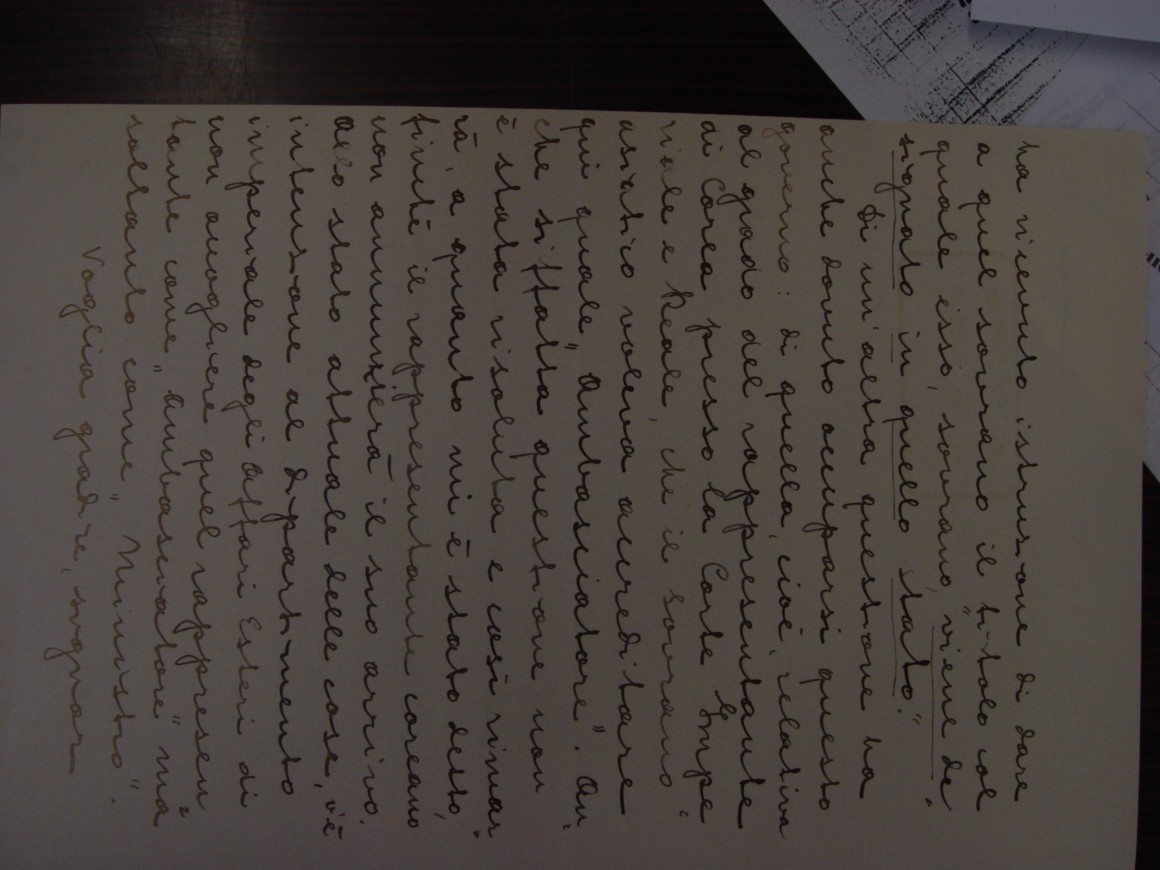 ha ricevuto istruzione di dare
a quel sovrano il titolo col
quale esso, sovrano, "viene de=
signato in quello stato."
Di un'altra questione ha
anche dovuto occuparsi questo
governo: di quella, cioè, relativa
al grado del rappresentante
di Corea presso la Corte Impe=
riale e Reale, che il sovrano
asiatico voleva accreditare
qui quale "Ambasciatore". An=
che siffatta questione non
è stata risoluta e così rimar=
rà, a quanto mi è stato detto,
finchè il rappresentante coreano
non annunzierà il suo arrivo.
Allo stato attuale delle cose, v'è
intenzione al dipartimento
imperiale degli Affari Esteri di
non accogliere quel rappresen=
tante come "ambasciatore" ma
soltanto come "Ministro".
Voglia gradire, signor